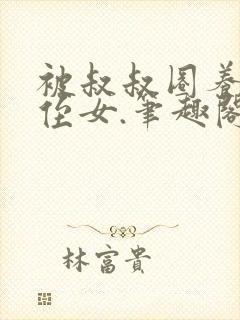 被叔叔圈养
侄女.笔趣阁
林富贵